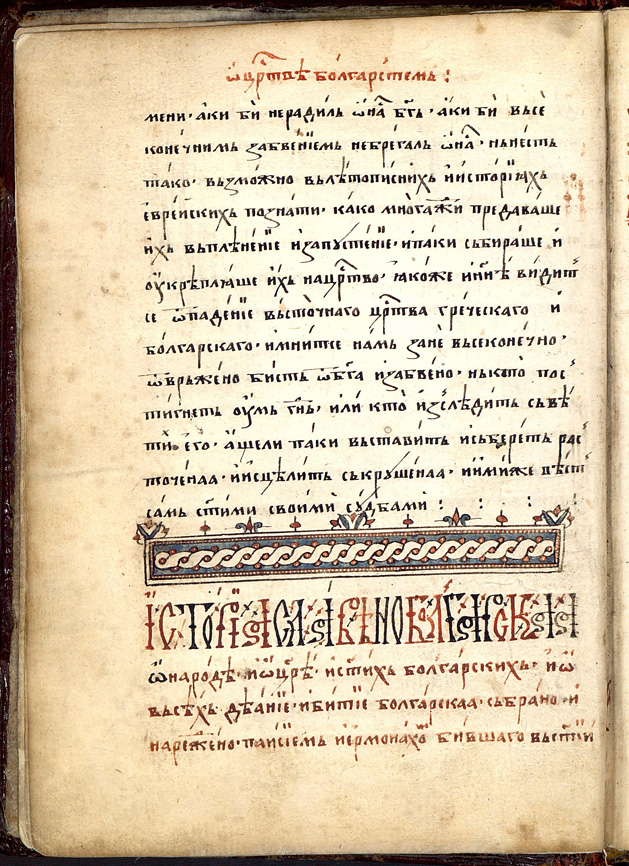 ѡ҆ црⷭ҇твѣ болгарстемъ :
мени · аки би нерадилъ ѡ҆наⷭ҇ бг҃ъ · аки би̑ всѐ
конечнимъ забвенїемъ небрегалъ ѡ҆наⷭ҇ · нъ несть
тако · възможно вълѣтописнихъ и҆исторїѧхъ
еврейскихъ познати · како многажди предаваше
ихъ въплѣненїе и҆запꙋстенїе · и҆паки събираше и҆
оукрѣплꙗше ихъ нацрⷭ҇тво · ꙗкоже и҆ нн҃ѣ видит
се ѿпаденїе въсточнаго црⷭ҇тва греческаго и҆
болгарскаго · имнитсе намъ зане всеконечно ·
ѿвръжено бистъ ѿ бг҃а и҆забвено · нъ кто пос
тигнетъ оумъ гⷭ҇нъ · или кто и҆зслѣдитъ съвѣ
ти его · ащели паки въставитъ и҆събереть рас
точенаѧ · и҆исцѣлитъ съкрꙋшенаѧ · и҆мже вѣсть
самъ ст҃ими своими сꙋдбами : : :
Исторїѧ славѣноболгарскаѧ
ѡ҆ народѣ · и҆ ѡ҆ црⷭ҇ѣ · и ст҃ихъ болгарскихъ · и҆ ѡ҆
въсѣхъ дѣанїе · и҆битїе болгорскаа · събрано и҆
нареждено · паисїемъ їермонахоⷨ бившаго въст҃ѣй